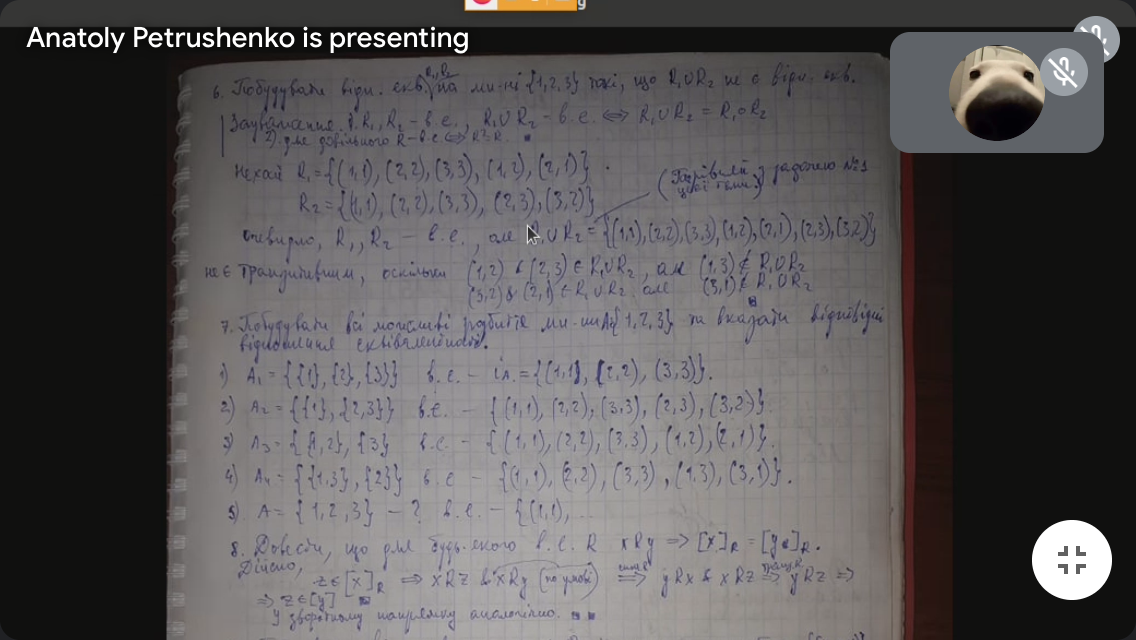 Anatoly Petrushenko is presenting
6. Побудувати відн. екв. R₁, R₂ на мн-ні {1,2,3} такі, що R₁∪R₂ не є відн. екв.
Зауваження. 1. R₁, R₂ – в.е., R₁∪R₂ – в.е. ⟺ R₁∪R₂ = R₁∘R₂
2) для довільного R – в.е. ⟺ R²=R.
Нехай R₁={(1,1), (2,2), (3,3), (1,2), (2,1)}.
R₂={(1,1), (2,2), (3,3), (2,3), (3,2)}
задачею №1
Очевидно, R₁, R₂ – в.е., але R₁∪R₂={(1,1),(2,2),(3,3),(1,2),(2,1),(2,3),(3,2)}
не є транзитивним, оскільки (1,2) & (2,3) ∈ R₁∪R₂, але (1,3) ∉ R₁∪R₂
(3,2) & (2,1) ∈ R₁∪R₂ але (3,1) ∉ R₁∪R₂
7. Побудувати всі можливі розбиття мн-ни A{1,2,3} та вказати відповідні
відношення еквівалентності.
1) A₁ = {{1}, {2}, {3}} в.е. – iA = {(1,1), (2,2), (3,3)}.
2) A₂ = {{1}, {2,3}} в.е. – {(1,1), (2,2), (3,3), (2,3), (3,2)}.
3) A₃ = {{1,2}, {3} в.е. – {(1,1), (2,2), (3,3), (1,2), (2,1)}.
4) A₄ = {{1,3}, {2}} в.е – {(1,1), (2,2), (3,3), (1,3), (3,1)}.
5). A = {1,2,3} – ? в.е. – {(1,1),
8. Довести, що для будь-якого в.е. R xRy ⟹ [x]_R = [y]_R.
Дійсно,
z∈[x]_R ⟹ xRz & xRy (по умові) ⟹ yRx & xRz ⟹ yRz ⟹
⟹ z∈[y]
У зворотному напрямку аналогічно.